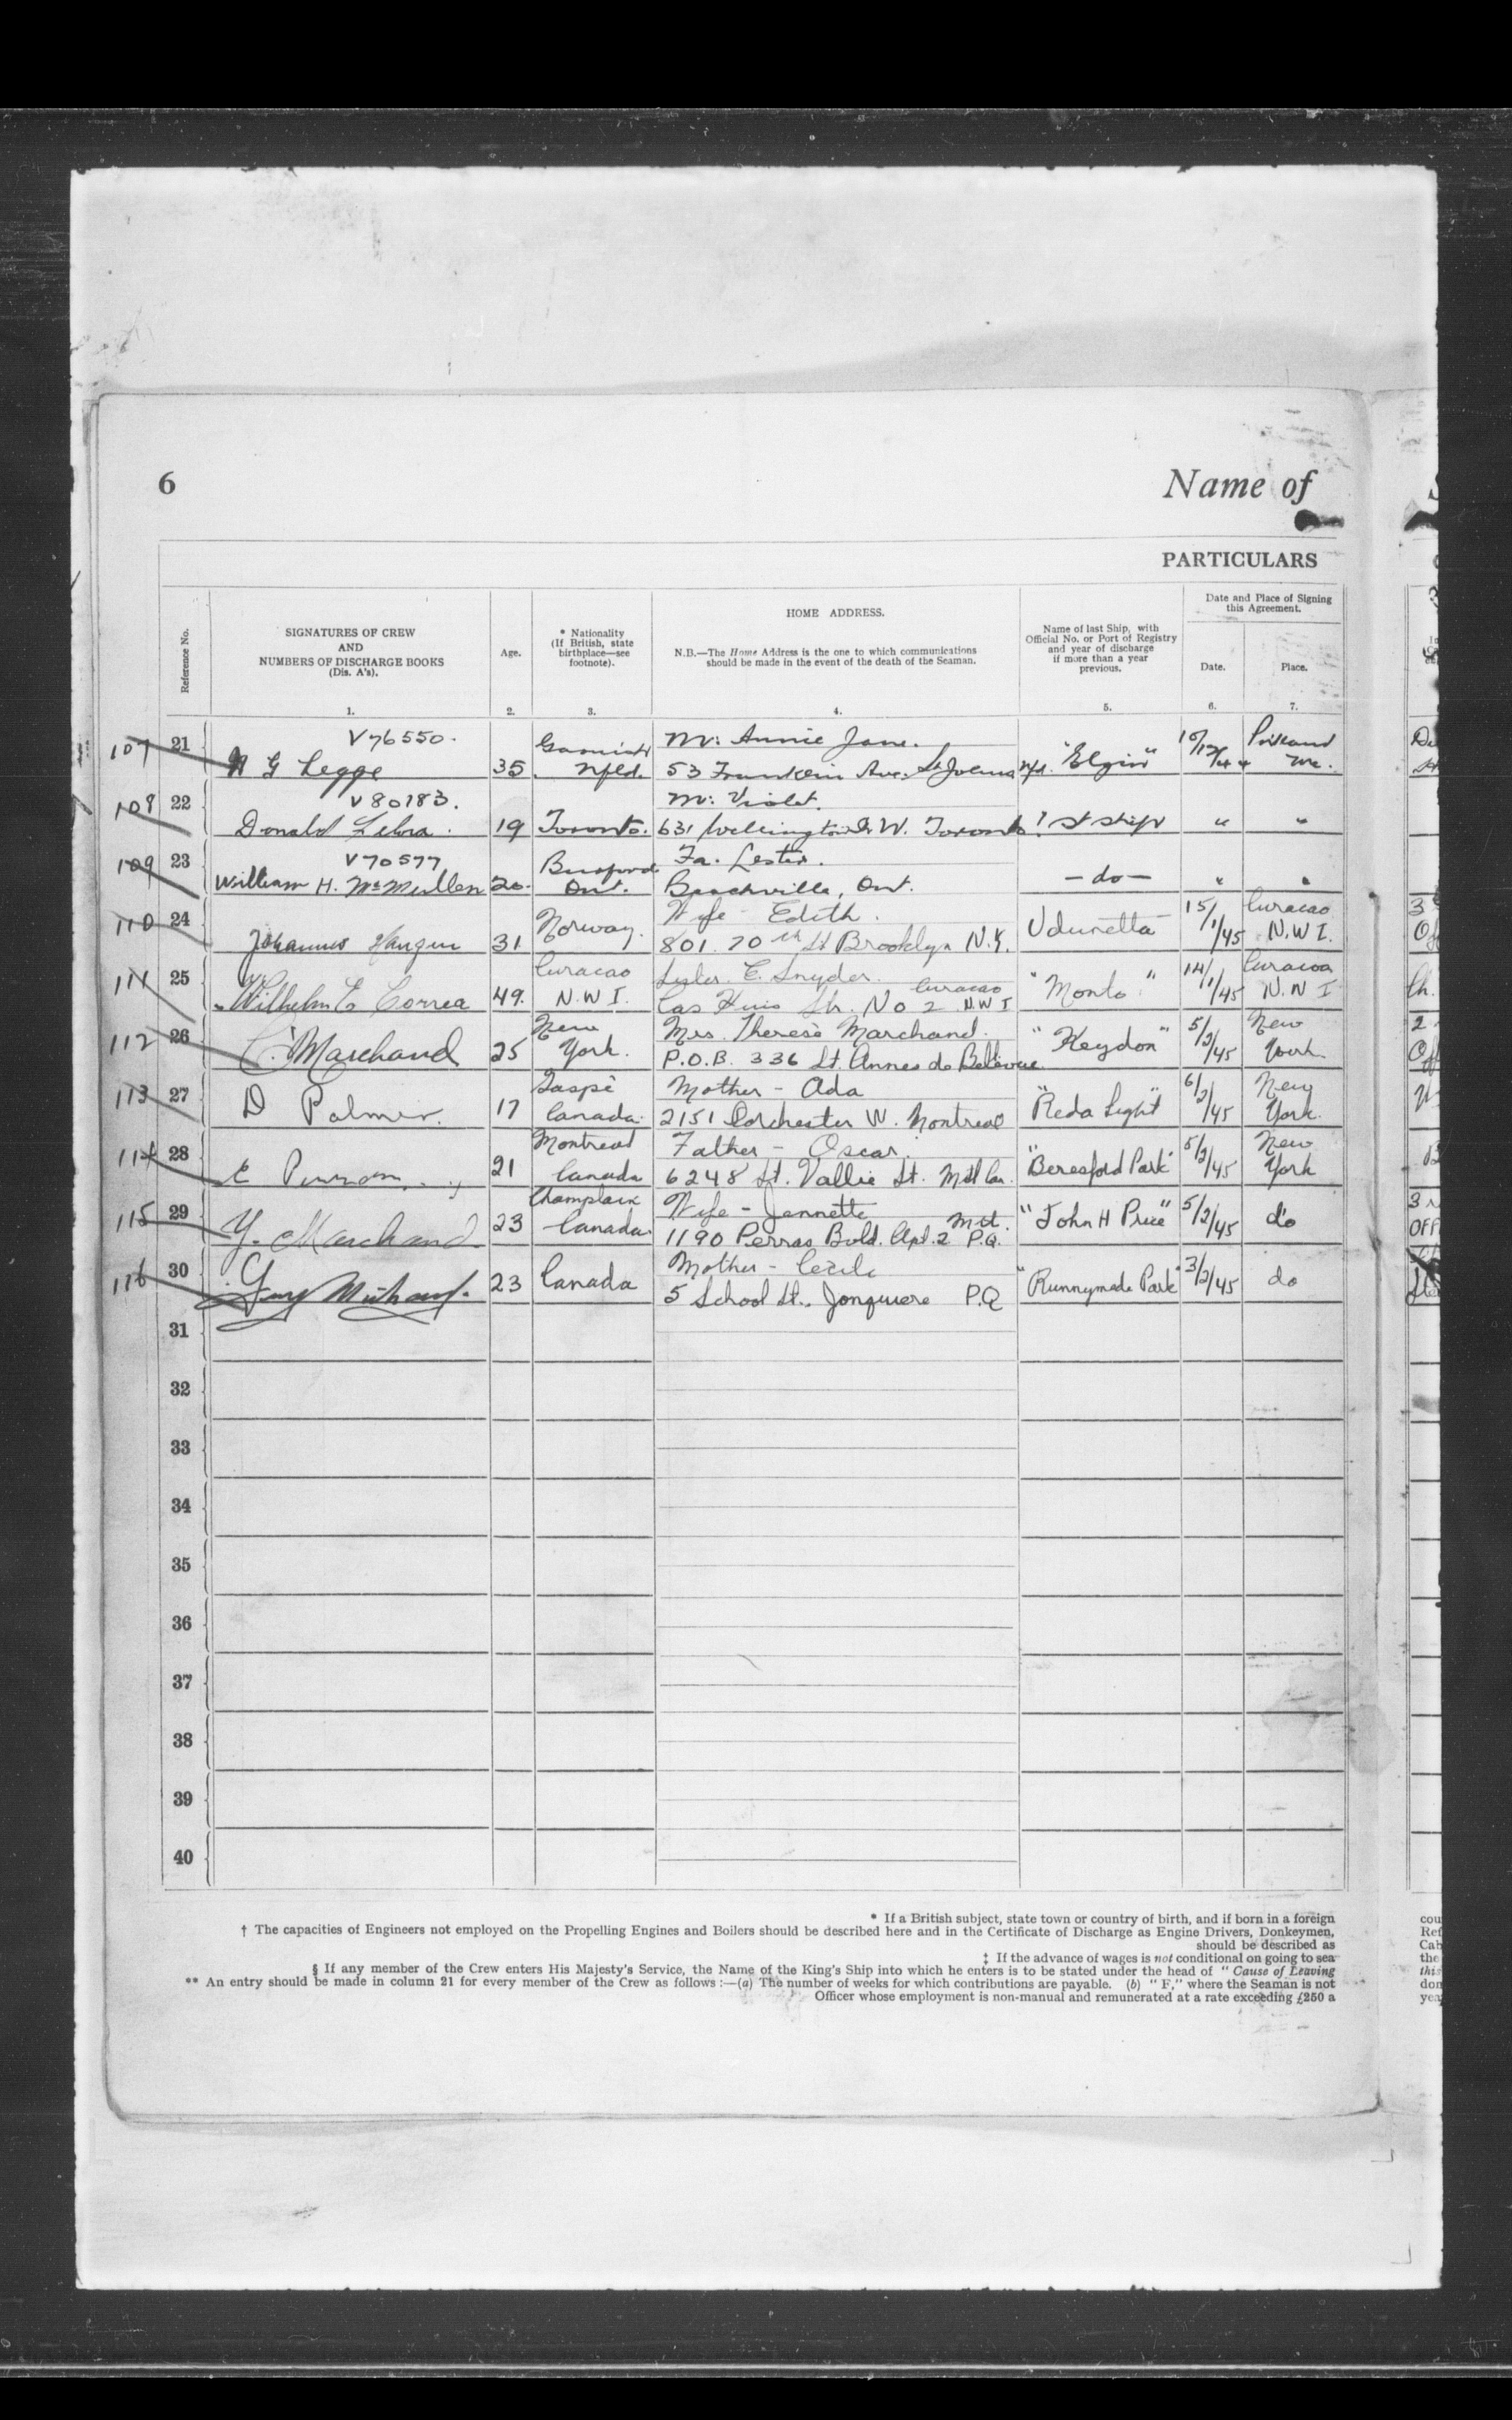 6
Name of
PARTICULARS
Reference No.
SIGNATURES OF CREW
AND
NUMBERS OF DISCHARGE BOOKS
(Dis. A's).
1.
Age.
2.
* Nationality
(If British, state
birthplace—see
footnote).
3.
HOME ADDRESS.
N.B.—The Home Address is the one to which communications
should be made in the event of the death of the Seaman.
4.
Name of last Ship, with
Official No. or Port of Registry
and year of discharge
if more than a year
previous.
5.
Date and Place of Signing
this Agreement.
Date.
6.
Place.
7.
107 21 V76550. Garnish M: Annie Jane. Portland
G Legge 35. Nfld. 53 Franklin Ave. St Johns Nfd. "Elgin" Me.
108 22 V80183. M: Violet.
Donald 19 Toronto. 631 Wellington St W. Toronto 1st ship " "
109 23 V70577 Fa. Lester.
William H. McMullen 20. Ont. Beachville, Ont. —do— " "
110 24 Norway. Wife - Edith. 15/1/45 Curacao
Johannes 31 801. 70th St Brooklyn N.Y. N.W.I.
111 25 Curacao C. Snyder. 14/1/45 Curacoa
Wilhelm E Correa 49. N.W.I. Cas Str. No 2 Curacao N W I "Monto" N.W I
112 26 New Mrs. Therese Marchand. 5/2/45 New
C. Marchand 25 York. P.O.B. 336 St. Annes de Bellevue "Keydon" York.
113 27 Gaspé Mother - Ada 6/2/45 New
D Palmer. 17 Canada. 2151 Dorchester W. Montreal "Reda Light" York.
114 28 Montreal Father - Oscar. 5/2/45 New
E 21 Canada 6248 St. Vallie St. Mtl Can. "Beresford Park" York
115 29 Champlain Wife - Jennette
Y. Marchand 23 Canada 1190 Perras Bvld. Apt. 2 Mtl. P.Q. "John H Price" 5/2/45 do
116 30 Mother - Cecile
23 Canada 5 School St., Jonquiere P.Q "Runnymede Park" 3/2/45 do
31
32
33
34
35
36
37
38
39
40
* If a British subject, state town or country of birth, and if born in a foreign
† The capacities of Engineers not employed on the Propelling Engines and Boilers should be described here and in the Certificate of Discharge as Engine Drivers, Donkeymen,
should be described as
‡ If the advance of wages is not conditional on going to sea
§ If any member of the Crew enters His Majesty's Service, the Name of the King's Ship into which he enters is to be stated under the head of "Cause of Leaving
** An entry should be made in column 21 for every member of the Crew as follows :—(a) The number of weeks for which contributions are payable. (b) "F," where the Seaman is not
Officer whose employment is non-manual and remunerated at a rate exceeding £250 a